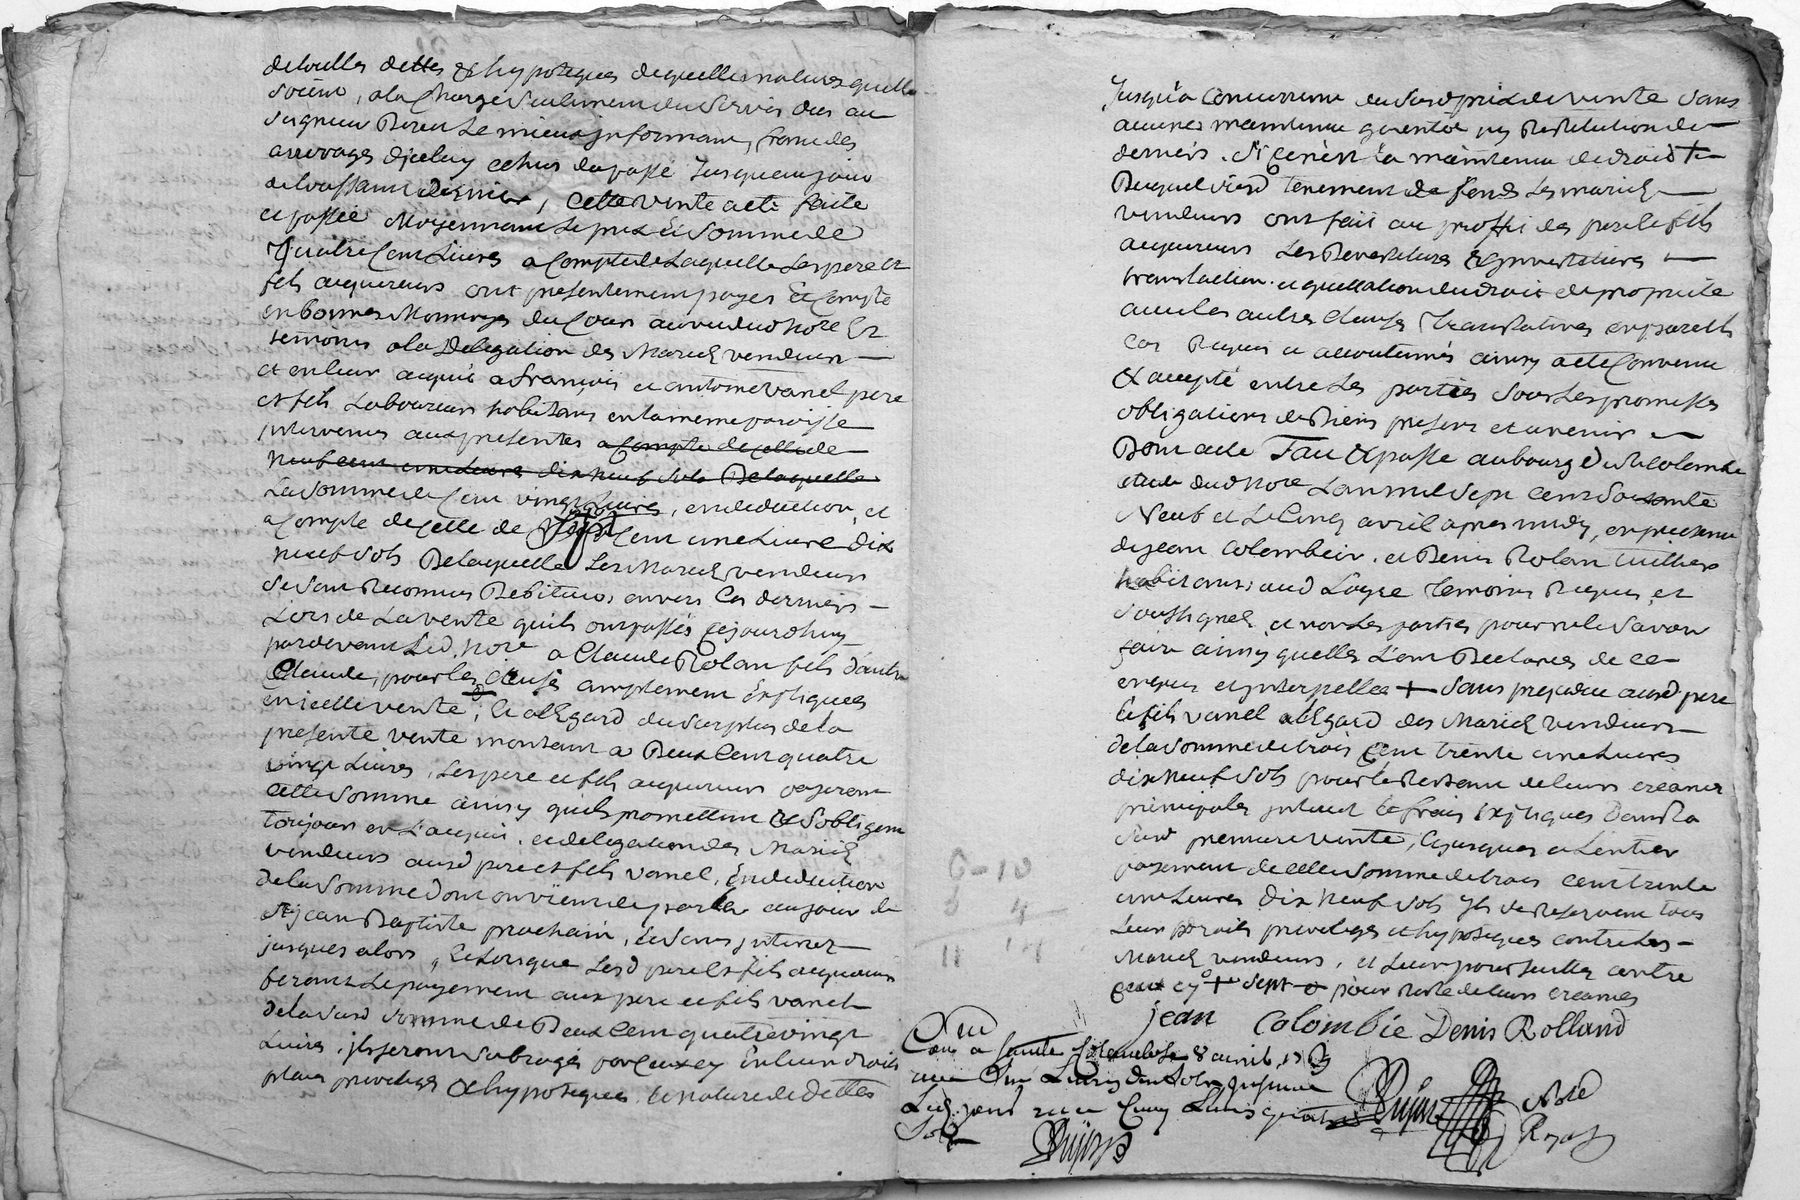 detoutes dettes & hypoteques dequelles natures quelles
soient, ala Charge seulement du servis deu au
seigneur Direct Le mieux informant, franc des
arrerages d'jceluy echus dupassé Jusqueaujour
detoussaint dernier, Cette vente aeté faite
et passée Moyennant Le prix et somme de
Quatre Cent Livres a Compte de Laquelle Les pere et
fils acquereurs ont presentement payés et Compté
en bonnes Monnoyes du Cours auvu dud Nore et
temoins ala Delegation des Mariés vendeurs
et enleur acquit a françois et antoine vanel pere
et fils Laboureurs habitans en lamemeparoisse
jntervenus aux presentes a Compte de Celle de
neuf cent une Livres dix neuf sols De laquelle
La somme de Cent vingt Livres, en deduction, et
a Compte de Celle de Sept Cent une Livre dix
neuf sols De laquelle Les Mariés vendeurs
se sont Reconnus Debiteurs envers Ces derniers
Lors de La vente quils ont passés Cejourdhuy
pardevant Led. Nore a Claude Rolan fils d'autre
Claude, pour les Causes amplement Expliquées
en icelle vente, Et al Egard du Surplus de la
presente vente montant a Deux Cent quatre
vingt Livres, Les pere et fils acquereurs payeront
cette somme ainsy quils promettent & Sobligent
toujours en L'acquit, et delegation des Mariés
vendeurs ausd pere et fils vanel, En deduction
de la Somme dont on vient de parler au jour de
St jean Baptiste prochain, Et sans jnterest
jusques alors, Et Lorsque Lesd pere et fils acquereurs
feront Le payement aux pere et fils vanel
de la susd somme de Deux Cent quatrevingt
Livres, jls seront subrogés par Ceux cy En leurs droits
place privileges & hypoteques. Et nature de dettes
Jusqu'a Concurrence du Susd prix de vente Sans
aucunes maintenue garentie ny Restitution de
deniers. Si Ce n'est La maintenue de droit +
Duquel susd tenement de fonds Les mariés
vendeurs ont fait au proffit des pere et fils
acquereurs Les Devestitures & jnvestitures
translation. et quittation du droit de proprieté
avec les autres Clauses Translatives en pareils
cas Requis et accoutumés ainsy aeté Convenu
& accepté entre Les parties Sous Les promesses
obligations de Biens presens et avenir
Dont acte Fait & passé au bourg de Ste Colombe
etude dud Nore L'an mil Sept Cent Soixante
Neuf et Le Cinq avril apres midy, en presence
de jean Colombier. et Denis Rolan tuilliers
habitans, aud Logre Temoins Requis, et
Soussignés, et non Les parties pour ne le Savoir
faire ainsy quelles L'ont Declarés de Ce
enquis et jnterpellés + Sans prejudice ausd pere
et fils vanel al Egard des Mariés vendeurs
de la Somme de trois Cent trente une Livres
dix neuf Sols pour le Restant de leurs creances
principales jnterest & frais Expliqués Dans la
Susd premiere vente, Et jusques a L'entier
payement de Celle Somme de trois Cent trente
une Livres dix neuf sols jls se Reservent tous
Leurs Droits privileges et hypoteques contre Les
Mariés vendeurs, et Leur poursuittes contre
Ceux cy + Sept o pour Reste de leurs creances
jean Colombie Denis Rolland
6 - 10
5 4
11 14
Con
a Sainte Colombe Le 8 avril 1769
Dujast Nore
Royal
Dujast